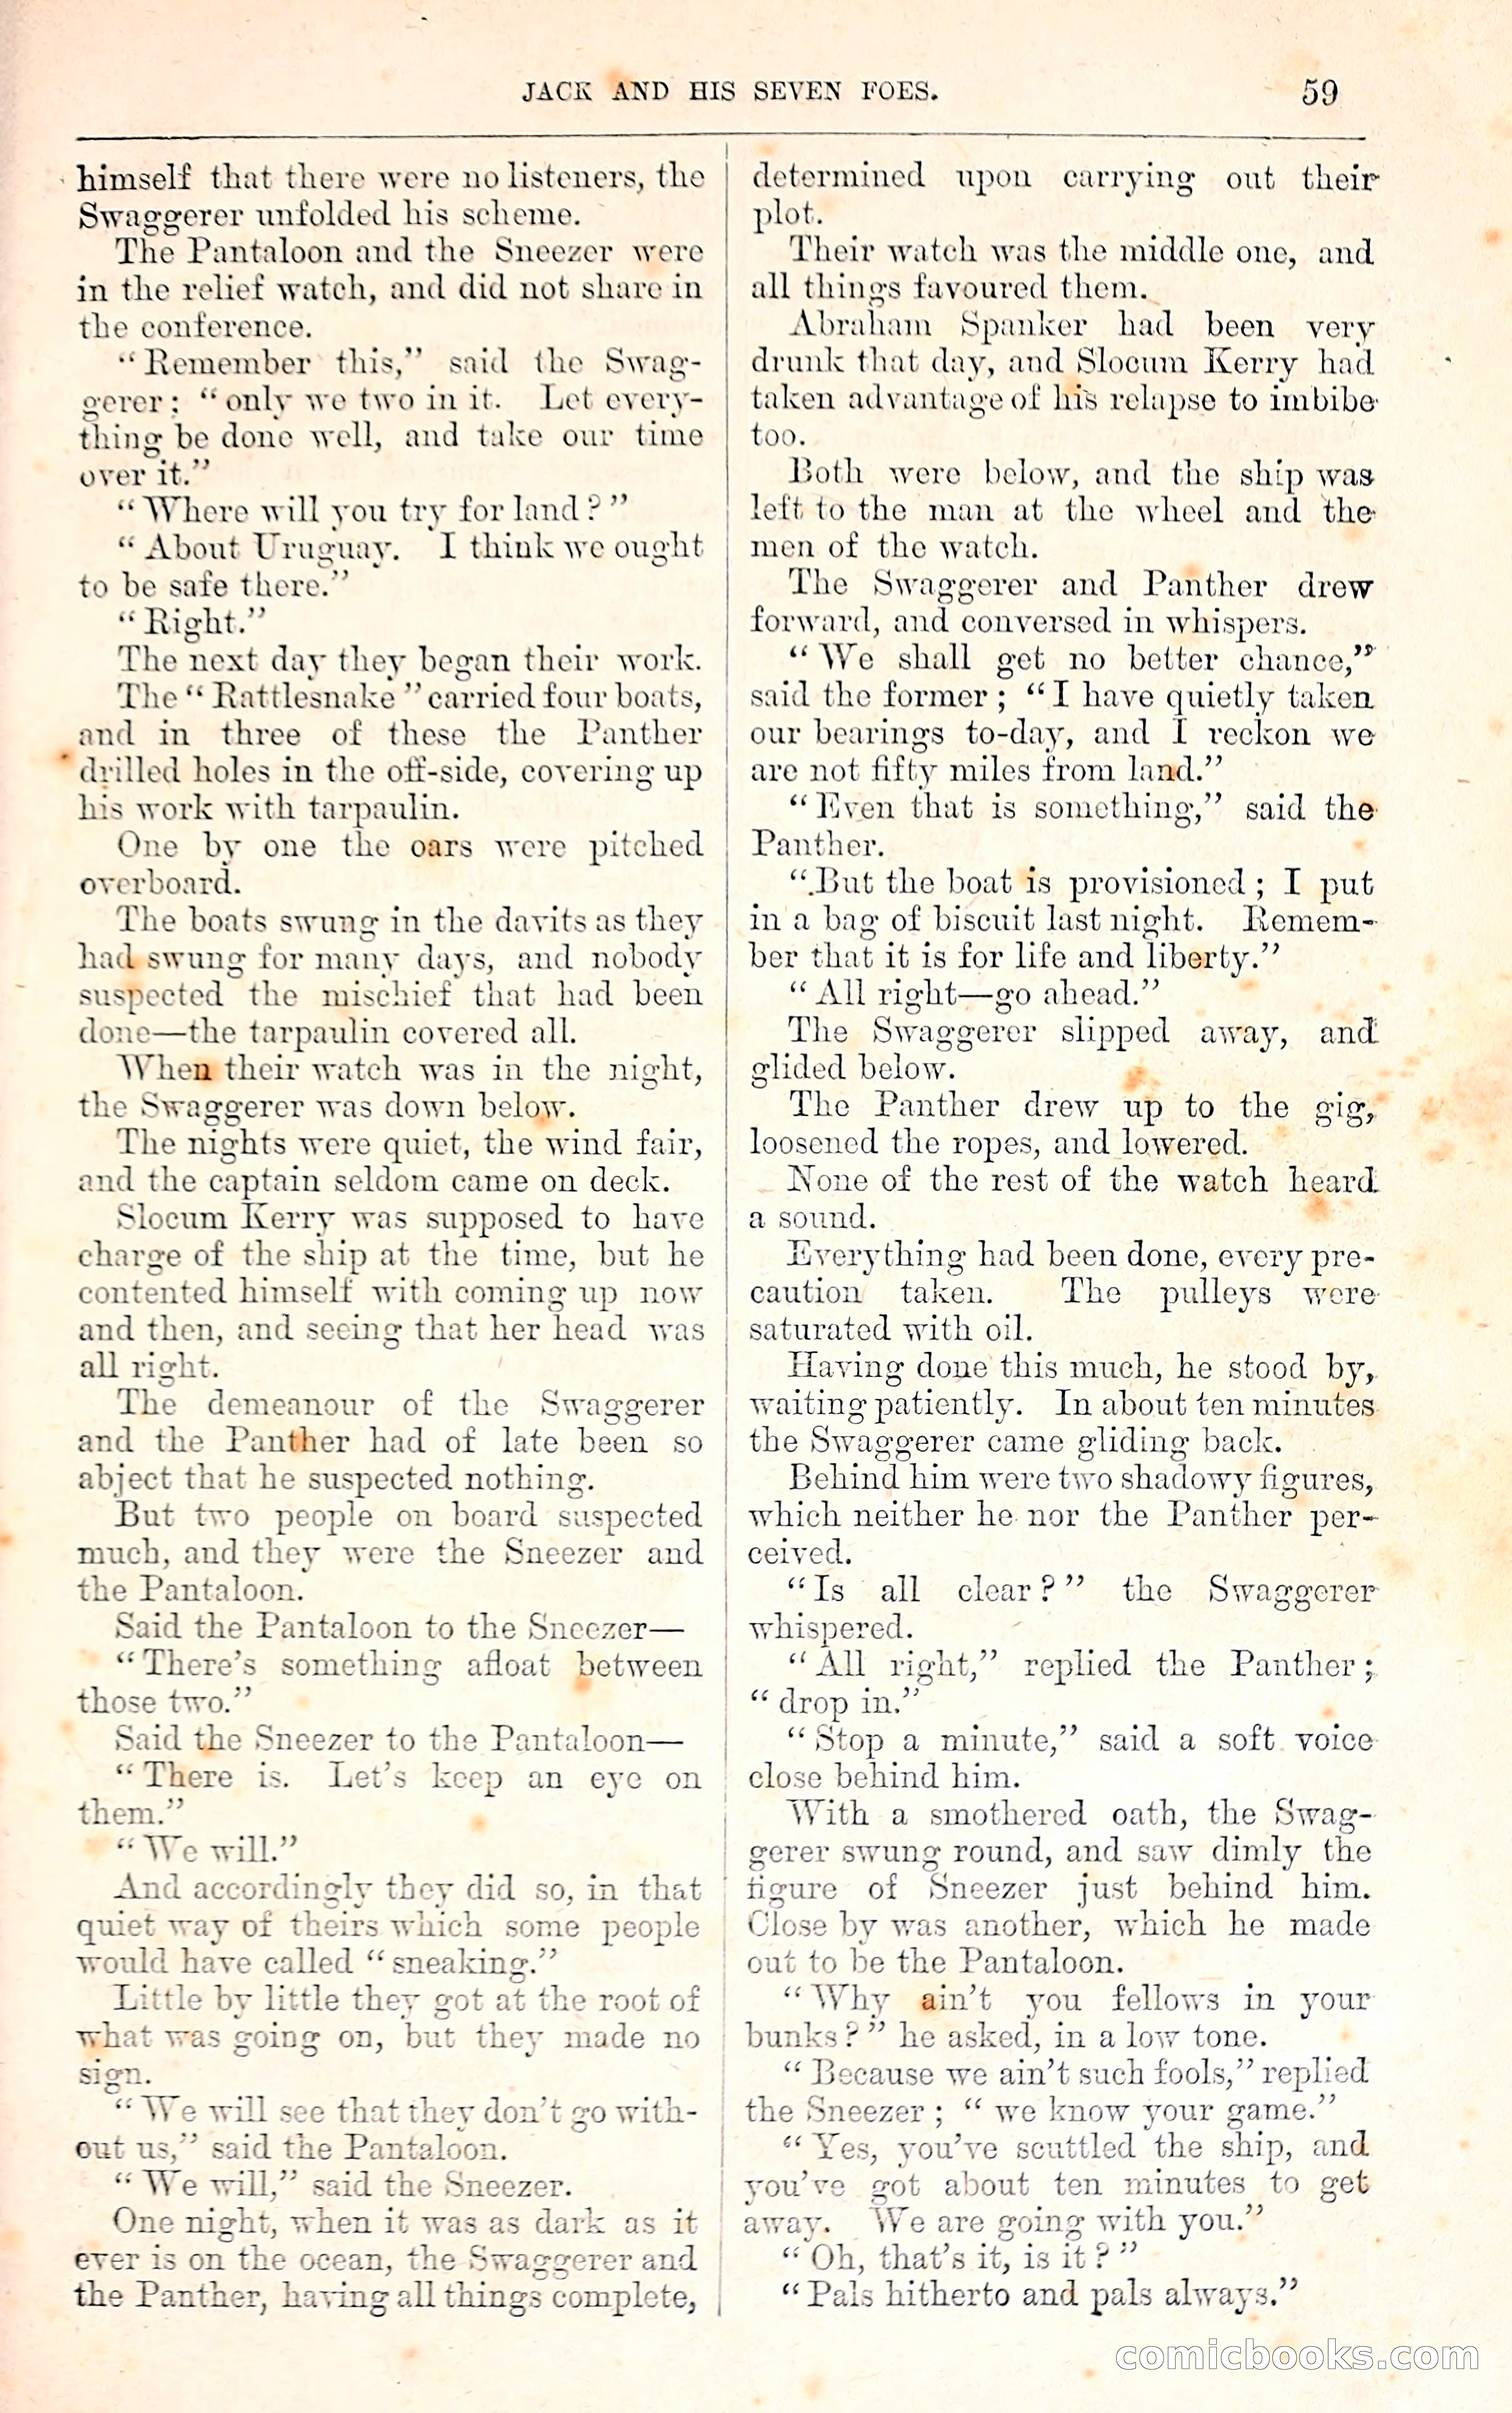 JACK AND HIS SEVEN FOES. 59
himself that there were no listeners, the
Swaggerer unfolded his scheme.
The Pantaloon and the Sneezer were
in the relief watch, and did not share in
the conference.
“Remember this,” said the Swag-
gerer; “only we two in it. Let every-
thing be done well, and take our time
over it.”
“Where will you try for land?”
“About Uruguay. I think we ought
to be safe there.”
“Right.”
The next day they began their work.
The “Rattlesnake” carried four boats,
and in three of these the Panther
drilled holes in the off-side, covering up
his work with tarpaulin.
One by one the oars were pitched
overboard.
The boats swung in the davits as they
had swung for many days, and nobody
suspected the mischief that had been
done—the tarpaulin covered all.
When their watch was in the night,
the Swaggerer was down below.
The nights were quiet, the wind fair,
and the captain seldom came on deck.
Slocum Kerry was supposed to have
charge of the ship at the time, but he
contented himself with coming up now
and then, and seeing that her head was
all right.
The demeanour of the Swaggerer
and the Panther had of late been so
abject that he suspected nothing.
But two people on board suspected
much, and they were the Sneezer and
the Pantaloon.
Said the Pantaloon to the Sneezer—
“There’s something afloat between
those two.”
Said the Sneezer to the Pantaloon—
“There is. Let’s keep an eye on
them.”
“We will.”
And accordingly they did so, in that
quiet way of theirs which some people
would have called “sneaking.”
Little by little they got at the root of
what was going on, but they made no
sign.
“We will see that they don’t go with-
out us,” said the Pantaloon.
“We will,” said the Sneezer.
One night, when it was as dark as it
ever is on the ocean, the Swaggerer and
the Panther, having all things complete,
determined upon carrying out their
plot.
Their watch was the middle one, and
all things favoured them.
Abraham Spanker had been very
drunk that day, and Slocum Kerry had
taken advantage of his relapse to imbibe
too.
Both were below, and the ship was
left to the man at the wheel and the
men of the watch.
The Swaggerer and Panther drew
forward, and conversed in whispers.
“We shall get no better chance,”
said the former; “I have quietly taken
our bearings to-day, and I reckon we
are not fifty miles from land.”
“Even that is something,” said the
Panther.
“But the boat is provisioned; I put
in a bag of biscuit last night. Remem-
ber that it is for life and liberty.”
“All right—go ahead.”
The Swaggerer slipped away, and
glided below.
The Panther drew up to the gig,
loosened the ropes, and lowered.
None of the rest of the watch heard
a sound.
Everything had been done, every pre-
caution taken. The pulleys were
saturated with oil.
Having done this much, he stood by,
waiting patiently. In about ten minutes
the Swaggerer came gliding back.
Behind him were two shadowy figures,
which neither he nor the Panther per-
ceived.
“Is all clear?” the Swaggerer
whispered.
“All right,” replied the Panther;
“drop in.”
“Stop a minute,” said a soft voice
close behind him.
With a smothered oath, the Swag-
gerer swung round, and saw dimly the
figure of Sneezer just behind him.
Close by was another, which he made
out to be the Pantaloon.
“Why ain’t you fellows in your
bunks?” he asked, in a low tone.
“Because we ain’t such fools,” replied
the Sneezer; “we know your game.”
“Yes, you’ve scuttled the ship, and
you’ve got about ten minutes to get
away. We are going with you.”
“Oh, that’s it, is it?”
“Pals hitherto and pals always.”
comicbooks.com